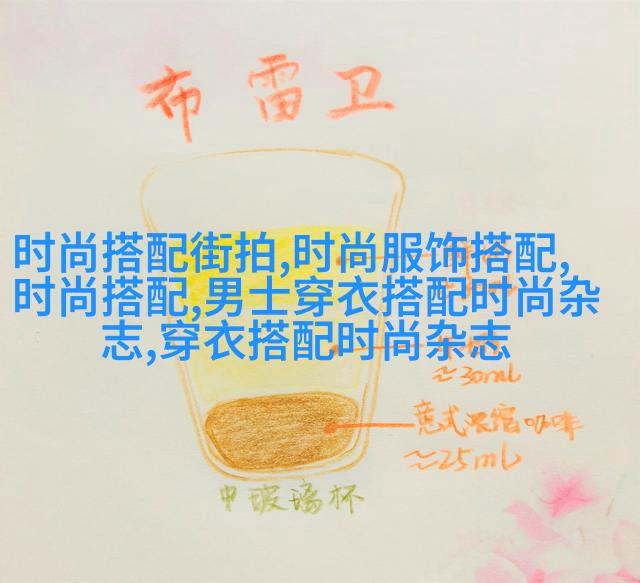 布雷卫
时尚搭配街拍,时尚服饰搭配,
时尚搭配,男士穿衣搭配时尚杂
志,穿衣搭配时尚杂志
≈30ml
意式浓缩咖啡
≈25ml
中玻璃杯